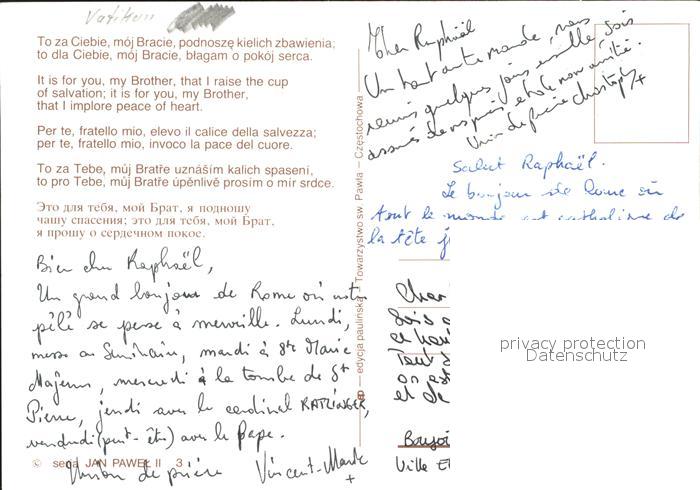 Vatikan
To za Ciebie, mój Bracie, podnoszę kielich zbawienia;
to dla Ciebie, mój Bracie, błagam o pokój serca.
It is for you, my Brother, that I raise the cup
of salvation; it is for you, my Brother,
that I implore peace of heart.
Per te, fratello mio, elevo il calice della salvezza;
per te, fratello mio, invoco la pace del cuore.
To za Tebe, můj Bratře uznáším kalich spasení,
to pro Tebe, můj Bratře úpěnlivě prosím o mír srdce.
Это для тебя, мой Брат, я подношу
чашу спасения; это для тебя, мой Брат,
я прошу о сердечном покое.
Bien cher Raphaël,
Un grand bonjour de Rome où notre
pélé se passe à merveille. Lundi,
messe au Séminaire, mardi à Ste Marie
Majeure, mercredi à la tombe de St
Pierre, jeudi avec le cardinal RATZINGER,
vendredi (peut-être) avec le Pape.
Union de prière Vincent-Marie +
© seria JAN PAWEŁ II 3
edycja paulińska – Towarzystwo sw. Pawła – Częstochowa
Cher Raphaël
Un haut autre monde, nous
réunis quelques jours ensemble
assurés de nos prières et de mon amitié.
Union de prière Christophe +
Salut Raphaël.
Le bonjour de Rome où
tout le monde est catholique de
la tête
privacy protection
Datenschutz